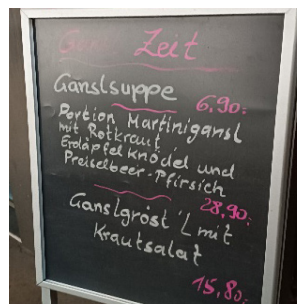 Gansl Zeit
Ganslsuppe
6,90.-
Portion Martinigansl
mit Rotkraut
Erdäpfelknödel und
Preiselbeer-Pfirsich
28,90.-
Ganslgröst'L mit
Krautsalat
15,80.-